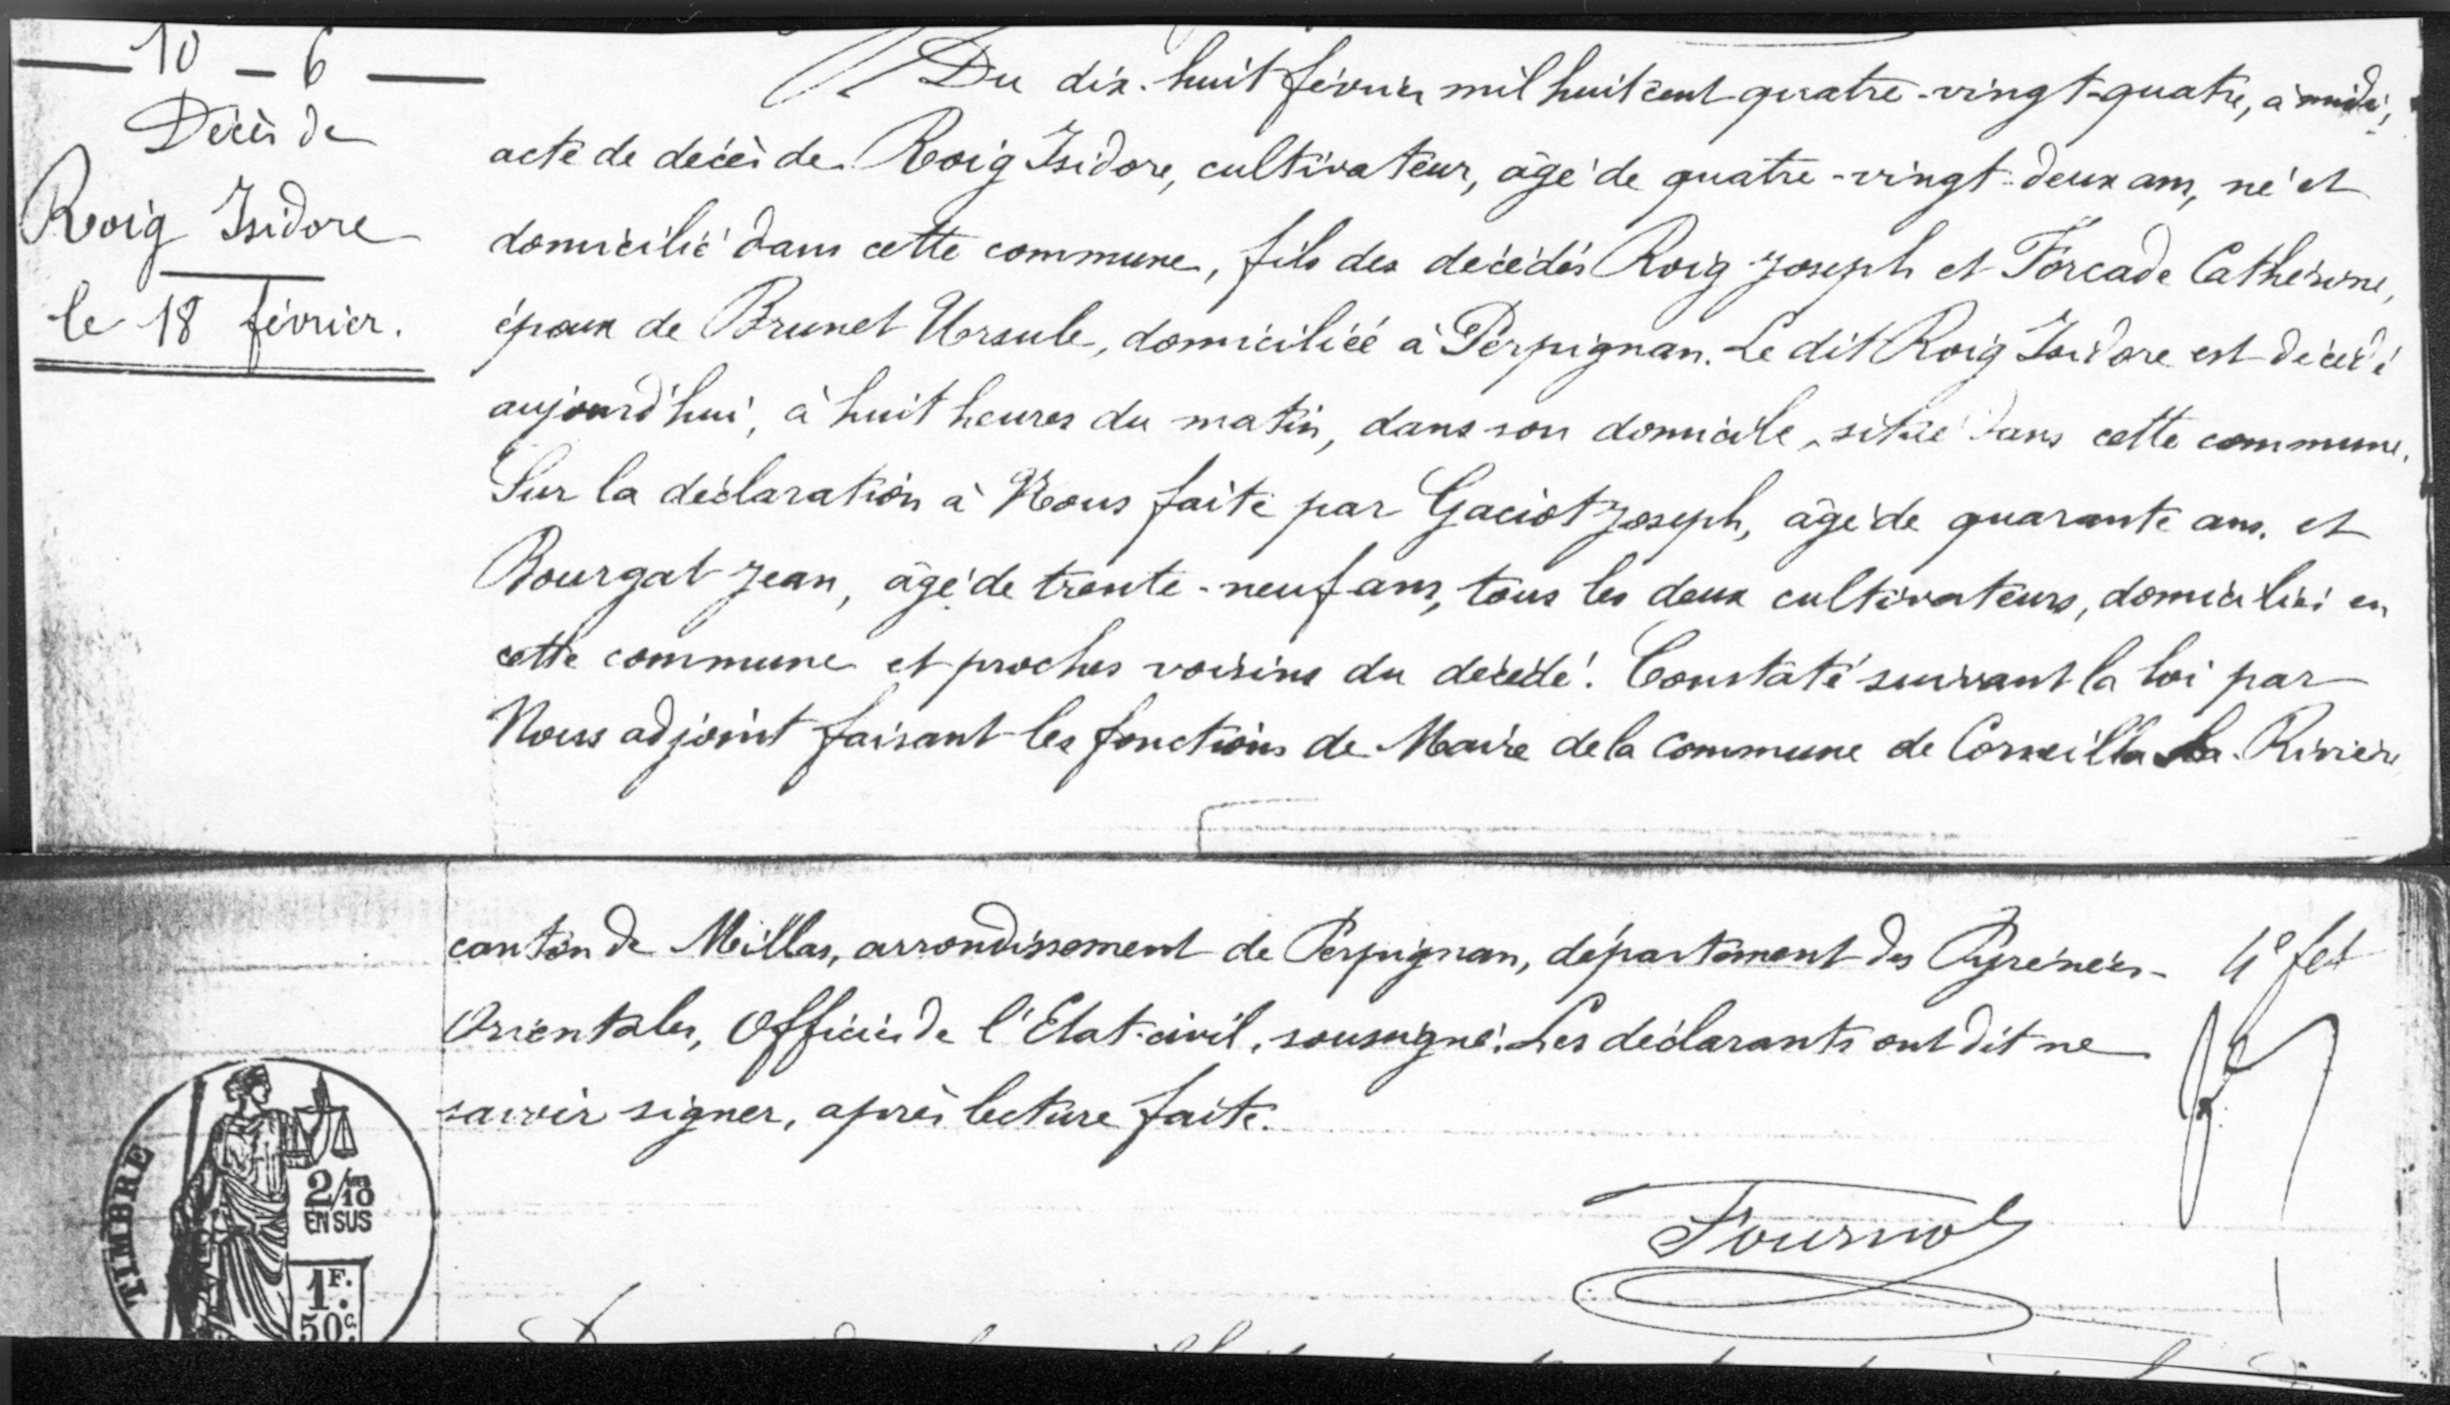 10 - 6
Décès de
Roig Isidore
le 18 février.
Du dix-huit février mil huit cent quatre-vingt-quatre, à midi,
acte de décès de Roig Isidore, cultivateur, âgé de quatre-vingt-deux ans, né et
domicilié dans cette commune, fils des décédés Roig Joseph et Forcade Catherine,
époux de Brunet Ursule, domiciliée à Perpignan. Le dit Roig Isidore est décédé
aujourd'hui, à huit heures du matin, dans son domicile, situé dans cette commune.
Sur la déclaration à Nous faite par Gaciot Joseph, âgé de quarante ans, et
Bourgat Jean, âgé de trente-neuf ans, tous les deux cultivateurs, domiciliés en
cette commune et proches voisins du décédé. Constaté suivant la loi par
Nous adjoint faisant les fonctions de Maire de la commune de Corneilla la Rivière
canton de Millas, arrondissement de Perpignan, département des Pyrénées-
Orientales, Officier de l'Etat-civil, soussigné. Les déclarants ont dit ne
savoir signer, après lecture faite.
4e fet
TIMBRE
2/10
EN SUS
1F.
50c.
Fournol